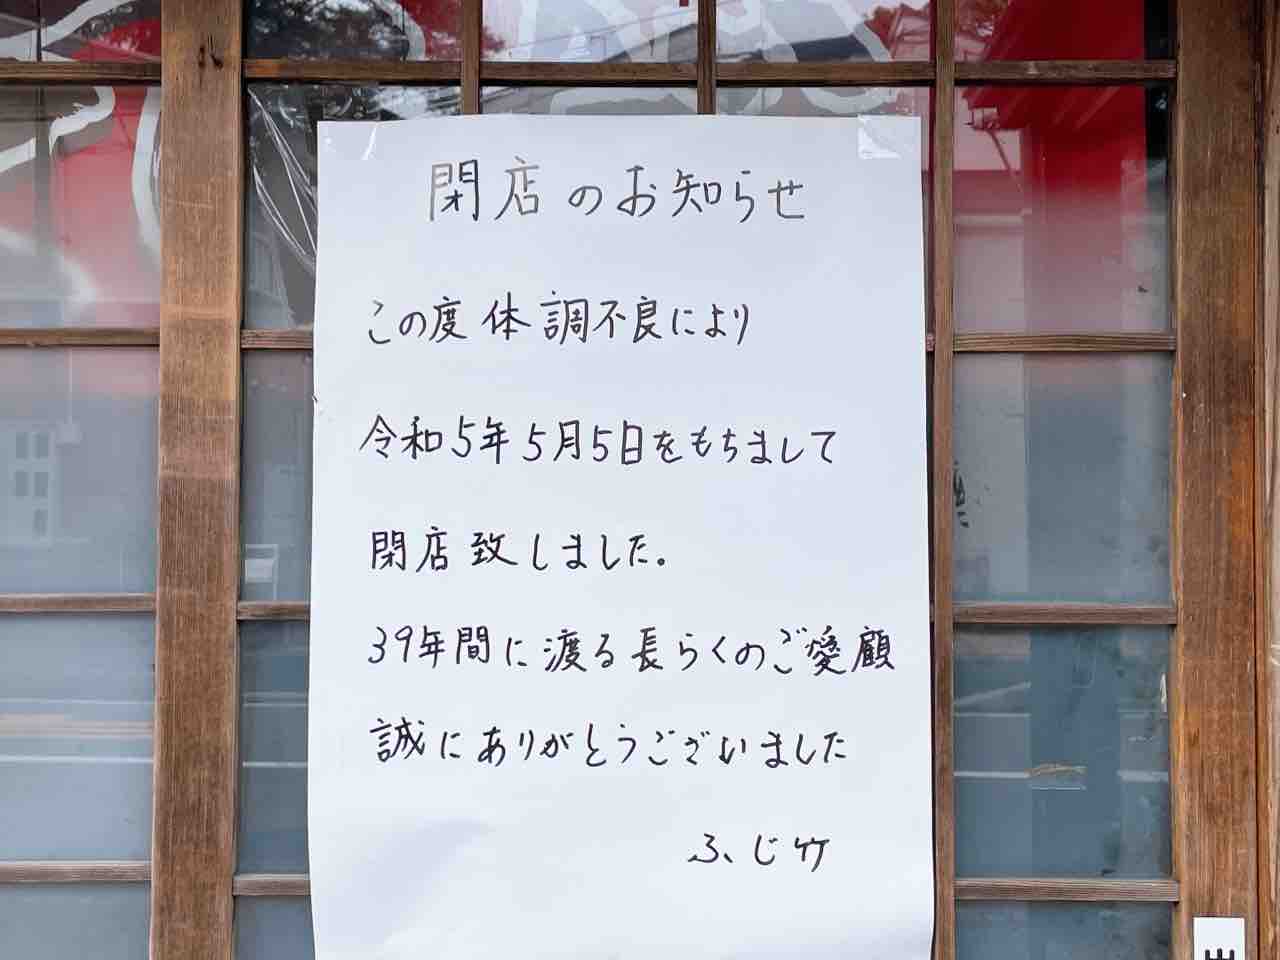 閉店のお知らせ
この度体調不良により
令和5年5月5日をもちまして
閉店致しました。
39年間に渡る長らくのご愛顧
誠にありがとうございました
ふじ竹